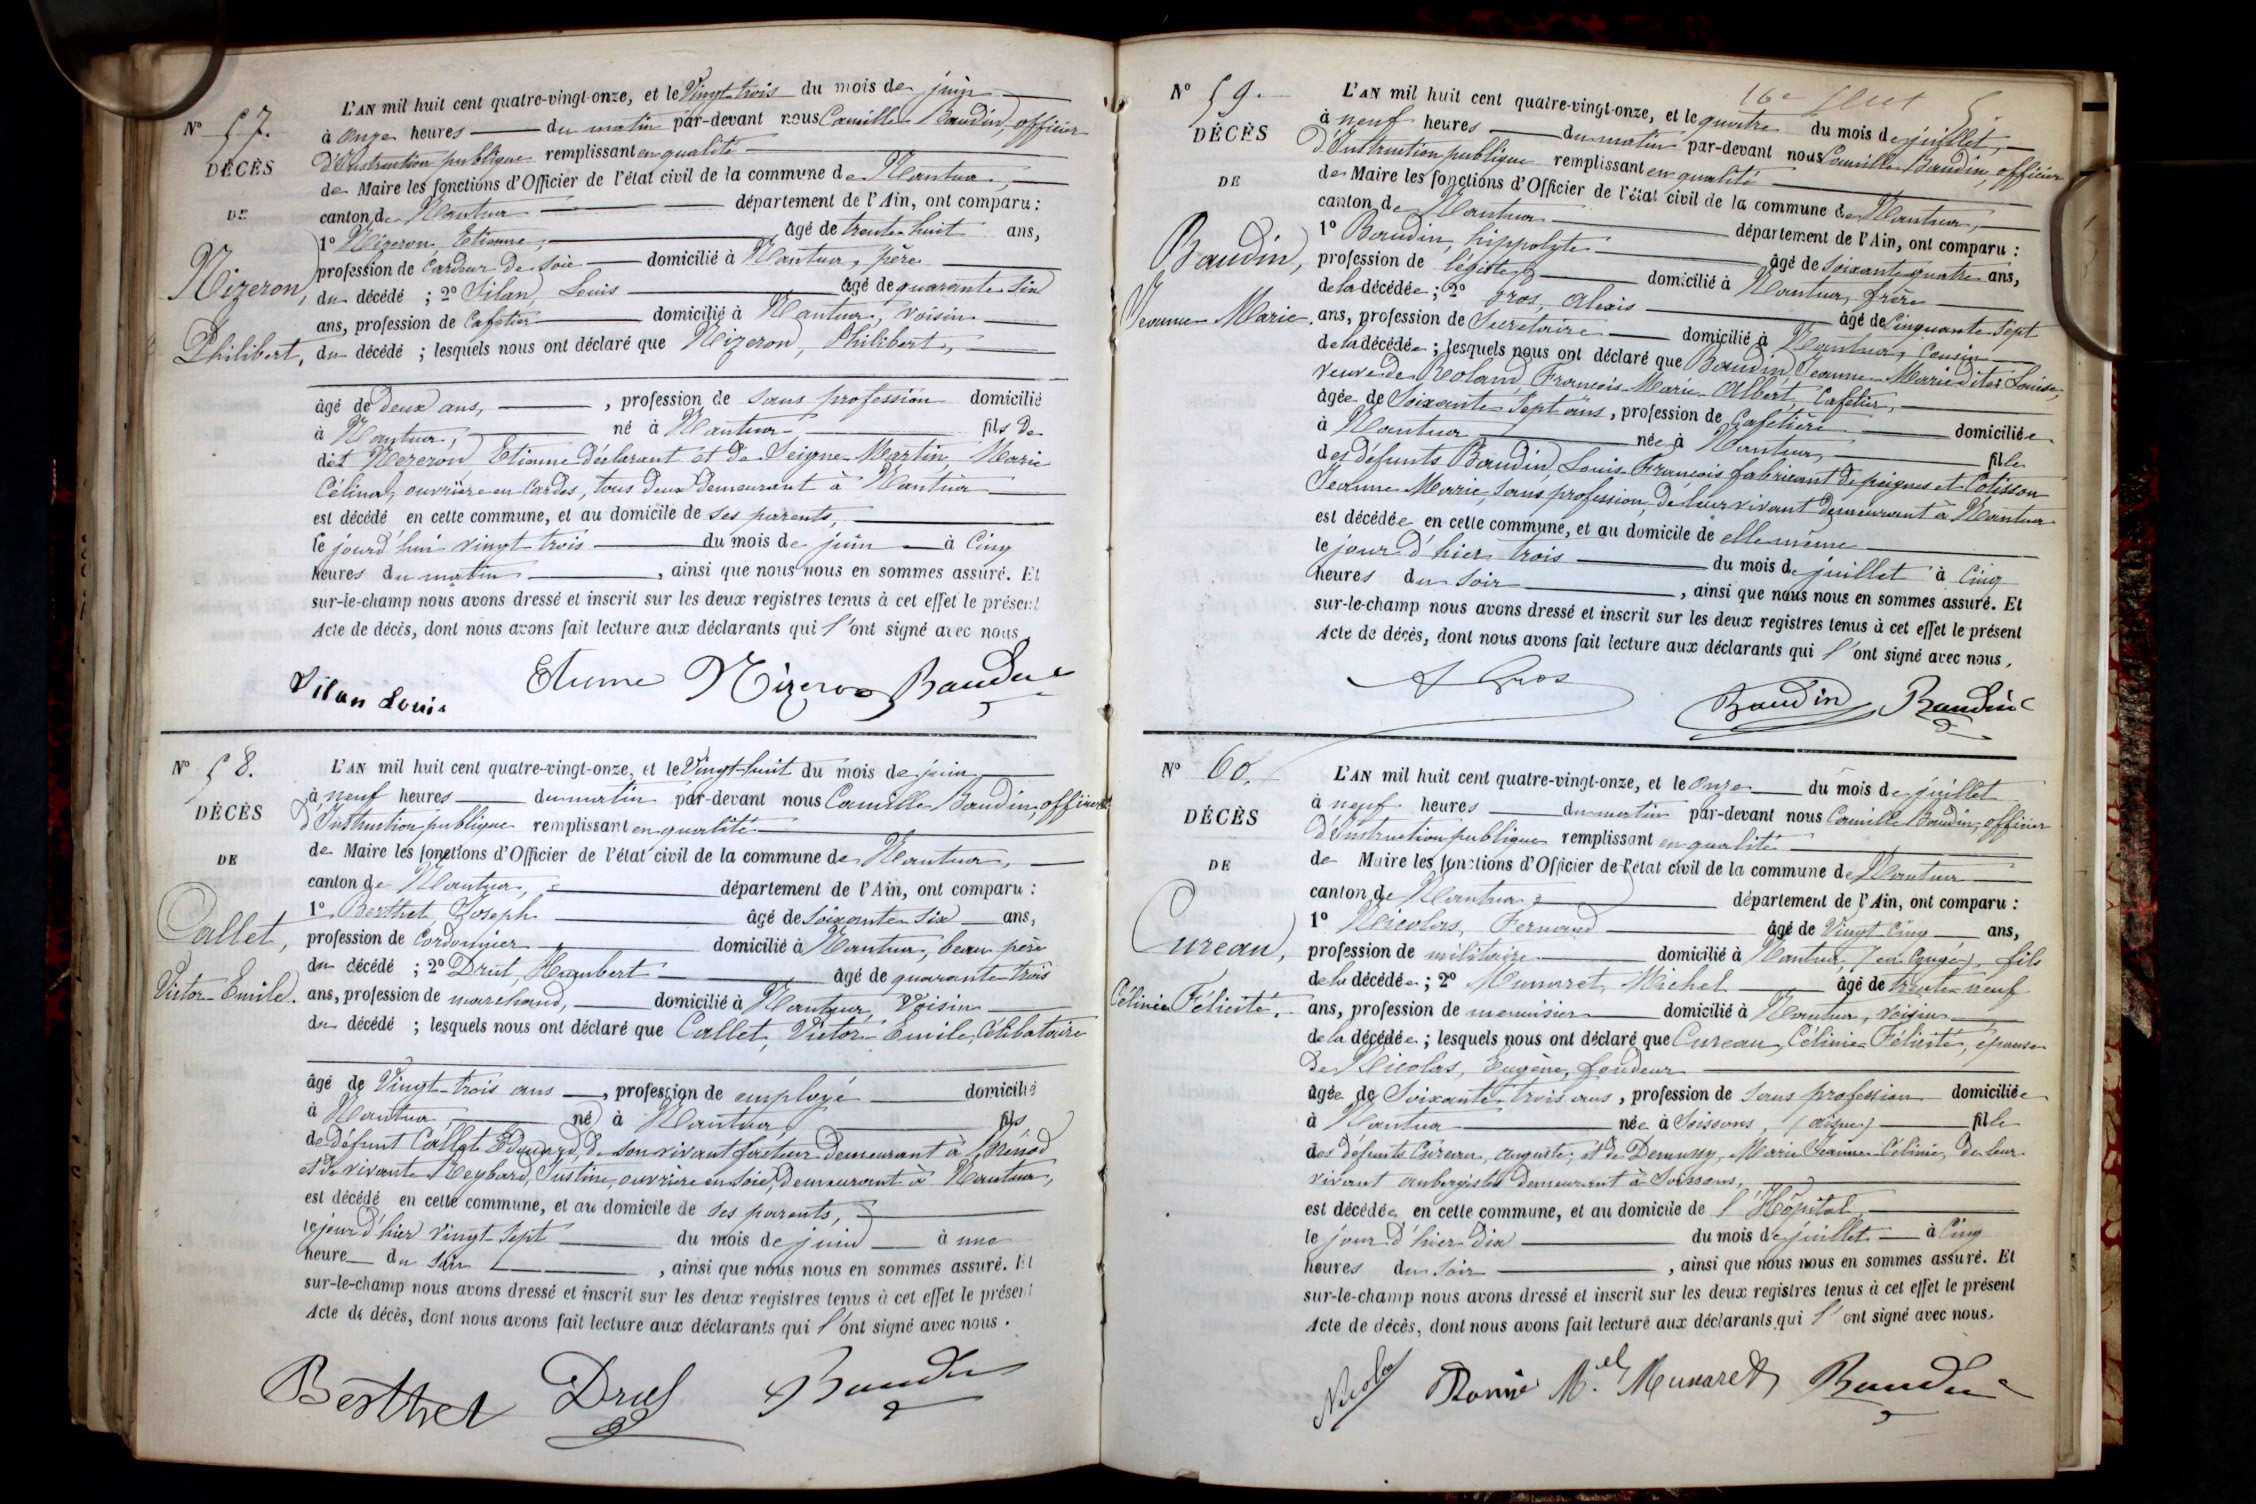 N° 57.
DÉCÈS
DE
Nizeron,
Philibert,
L'AN mil huit cent quatre-vingt-onze, et le Vingt-trois du mois de juin
à onze heures du matin par-devant nous Camille Baudin, officier
d'Instruction publique remplissant en qualité
de Maire les fonctions d'Officier de l'état civil de la commune de Nantua,
canton de Nantua département de l'Ain, ont comparu :
1° Nizeron, Etienne, âgé de trente-huit ans,
profession de Cardeur de soie domicilié à Nantua, père
du décédé ; 2° Silan, Louis âgé de quarante-six
ans, profession de Cafetier domicilié à Nantua, voisin
du décédé ; lesquels nous ont déclaré que Nizeron, Philibert,
âgé de deux ans, , profession de sans profession domicilié
à Nantua, né à Nantua fils de
dèt Nezeron Etienne déclarant et de Seigne-Martin, Marie
Célina, ouvrière en Cardes, tous deux demeurant à Nantua
est décédé en cette commune, et au domicile de ses parents,
le jourd'hui vingt trois du mois de juin à Cinq
heures du matin , ainsi que nous nous en sommes assuré. Et
sur-le-champ nous avons dressé et inscrit sur les deux registres tenus à cet effet le présent
Acte de décès, dont nous avons fait lecture aux déclarants qui l'ont signé avec nous
Silan Louis Etienne Nizeron Baudin
N° 58.
DÉCÈS
DE
Callet,
Victor-Emile.
L'AN mil huit cent quatre-vingt-onze, et le Vingt-huit du mois de juin
à neuf heures du matin par-devant nous Camille Baudin, officier
d'Instruction publique remplissant en qualité
de Maire les fonctions d'Officier de l'état civil de la commune de Nantua,
canton de Nantua, département de l'Ain, ont comparu :
1° Berthet, Joseph âgé de soixante-six ans,
profession de Cordonnier domicilié à Nantua, beau père
du décédé ; 2° Drut, Humbert âgé de quarante-trois
ans, profession de marchand, domicilié à Nantua, Voisin
du décédé ; lesquels nous ont déclaré que Callet, Victor-Emile, Célibataire
âgé de Vingt-trois ans , profession de employé domicilié
à Nantua né à Nantua, fils
de défunt Callet Edouard, de son vivant facteur demeurant à Brénod
et de vivante Reybard, Justine, ouvrière en soie, demeurant à Nantua,
est décédé en cette commune, et au domicile de ses parents,
le jour d'hier vingt-sept du mois de juin à une
heure du soir , ainsi que nous nous en sommes assuré. Et
sur-le-champ nous avons dressé et inscrit sur les deux registres tenus à cet effet le présent
Acte de décès, dont nous avons fait lecture aux déclarants qui l'ont signé avec nous.
Berthet Drut Baudin
N° 59.
DÉCÈS
DE
Baudin,
Jeanne-Marie.
16e
L'AN mil huit cent quatre-vingt-onze, et le quatre du mois de juillet,
à neuf heures du matin par-devant nous Camille Baudin, officier
d'Instruction publique remplissant en qualité
de Maire les fonctions d'Officier de l'état civil de la commune de Nantua,
canton de Nantua département de l'Ain, ont comparu :
1° Baudin, hippolyte âgé de soixante quatre ans,
profession de légiste domicilié à Nantua, frère
de la décédée ; 2° Gros, Alexis âgé de Cinquante-sept
ans, profession de Secrétaire domicilié à Nantua, Cousin
de la décédée ; lesquels nous ont déclaré que Baudin, Jeanne-Marie dite Louise,
veuve de Roland, François-Marie-Albert, Cafetier,
âgée de Soixante-Sept ans, profession de Cafetière domiciliée
à Nantua née à Nantua, fille
des défunts Baudin, Louis-François fabricant de peignes et Cotisson
Jeanne Marie, sans profession, de leur vivant demeurant à Nantua
est décédée en cette commune, et au domicile de elle même
le jour d'hier trois du mois de juillet à Cinq
heures du soir , ainsi que nous nous en sommes assuré. Et
sur-le-champ nous avons dressé et inscrit sur les deux registres tenus à cet effet le présent
Acte de décès, dont nous avons fait lecture aux déclarants qui l'ont signé avec nous.
A Gros Baudin Baudin
N° 60.
DÉCÈS
DE
Cureau,
Célinie Félicité.
L'AN mil huit cent quatre-vingt-onze, et le onze du mois de juillet
à neuf heures du matin par-devant nous Camille Baudin, officier
d'Instruction publique remplissant en qualité
de Maire les fonctions d'Officier de l'état civil de la commune de Nantua
canton de Nantua département de l'Ain, ont comparu :
1° Nicolas, Fernand âgé de Vingt-Cinq ans,
profession de militaire domicilié à Nantua, (en Congé), fils
de la décédée ; 2° Munaret, Michel âgé de trente-neuf
ans, profession de menuisier domicilié à Nantua, voisin
de la décédée ; lesquels nous ont déclaré que Cureau, Célinie Félicité, épouse
de Nicolas, Eugène, fondeur
âgée de Soixante-trois ans, profession de sans profession domiciliée
à Nantua née à Soissons, (aisne) fille
des défunts Cureau, auguste, et de Demussy, Marie Jeanne Célinie, de leur
vivant aubergistes demeurant à Soissons,
est décédée en cette commune, et au domicile de l'Hôpital,
le jour d'hier dix du mois de juillet à Cinq
heures du soir , ainsi que nous nous en sommes assuré. Et
sur-le-champ nous avons dressé et inscrit sur les deux registres tenus à cet effet le présent
Acte de décès, dont nous avons fait lecture aux déclarants qui l'ont signé avec nous.
Nicolas Mel Munaret Baudin